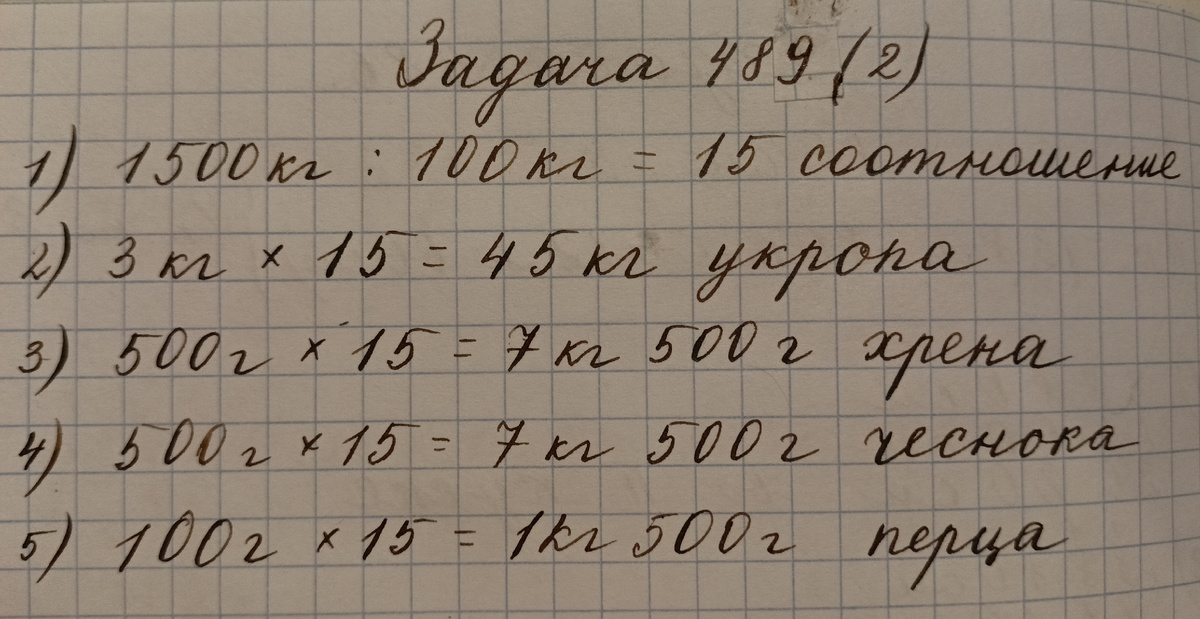 Задача 489 (2)
1) 1500кг : 100кг = 15 соотношение
2) 3 кг × 15 = 45 кг укропа
3) 500г × 15 = 7 кг 500 г хрена
4) 500г × 15 = 7 кг 500 г чеснока
5) 100г × 15 = 1кг 500г перца